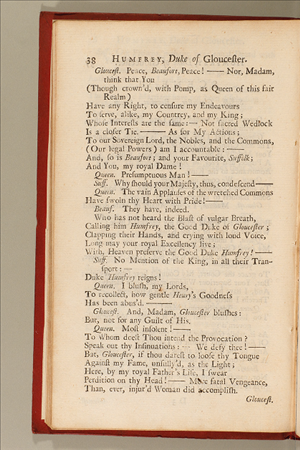 38 HUMFREY, Duke of Gloucester.
Gloucest. Peace, Beaufort, Peace! —— Nor, Madam,
think that You
(Though crown'd, with Pomp, as Queen of this fair
Realm)
Have any Right, to censure my Endeavours
To serve, alike, my Countrey, and my King;
Whose Interests are the same: — Nor sacred Wedlock
Is a closer Tie. ——— As for My Actions;
To our Sovereign Lord, the Nobles, and the Commons,
(Our legal Powers) am I accountable: ——
And, so is Beaufort; and your Favourite, Suffolk;
And You, my royal Dame!
Queen. Presumptuous Man! ——
Suff. Why should your Majesty, thus, condescend ——
Queen. The vain Applauses of the wretched Commons
Have swoln thy Heart with Pride! ——
Beauf. They have, indeed.
Who has not heard the Blast of vulgar Breath,
Calling him Humfrey, the Good Duke of Gloucester;
Clapping their Hands, and crying with loud Voice,
Long may your royal Excellency live;
With, Heaven preserve the Good Duke Humfrey! ——
Suff. No Mention of the King, in all their Tran-
sport: —
Duke Humfrey reigns!
Queen. I blush, my Lords,
To recollect, how gentle Henry's Goodness
Has been abus'd. ———
Gloucest. And, Madam, Gloucester blushes:
But, not for any Guilt of His.
Queen. Most insolent! ——
To Whom doest Thou intend the Provocation?
Speak out thy Insinuations: — We defy thee! ——
But, Gloucester, if thou darest to loose thy Tongue
Against my Fame, unsully'd, as the Light;
Here, by my royal Father's Life, I swear
Perdition on thy Head! —— More fatal Vengeance,
Than, ever, injur'd Woman did accomplish.
Gloucest.